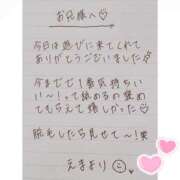 お兄様へ♡
今日は遊びに来てくれて
ありがとうございました
今までで1番気持ちい
い〜!って舐めるの褒め
てもらえて嬉しかった♡
脱毛したら見せて〜!笑
えまより